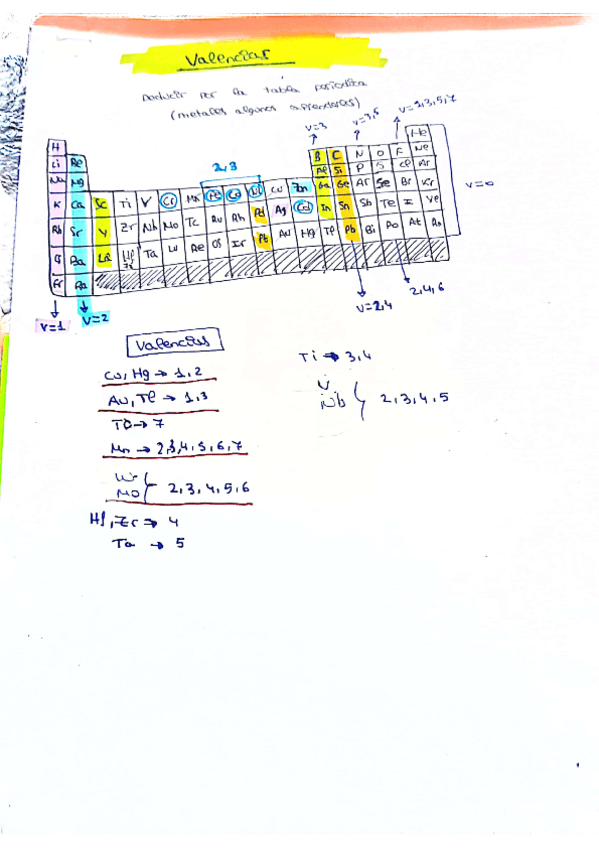 Valencias
por la tabla periodica
(metales algunos aprenderes)
V=3
V=3,5
V=1,3,5,7
H
He
Li Be B C N O F Ne
Na Mg Al Si P S Cl Ar
2,3
K Ca Sc Ti V Cr Mn Fe Co Ni Cu Zn Ga Ge Se Br Kr
V=0
Rb Sr Y Zr Nb Mo Tc Ru Rh Pd Ag Cd In Sn Sb Te I
Ba La Hf Ta W Re Os Ir Pt Au Hg Tl Pb Bi Po At
Fr Ra
V=1
V=2
V=2,4
2,4,6
Valencias
Cu, Hg → 1,2
Au, Tl → 1,3
→ 7
Mn → 2,3,4,5,6,7
W
Mo
2,3,4,5,6
Hf, Zr → 4
Ta → 5
Ti → 3,4
V
Nb
2,3,4,5